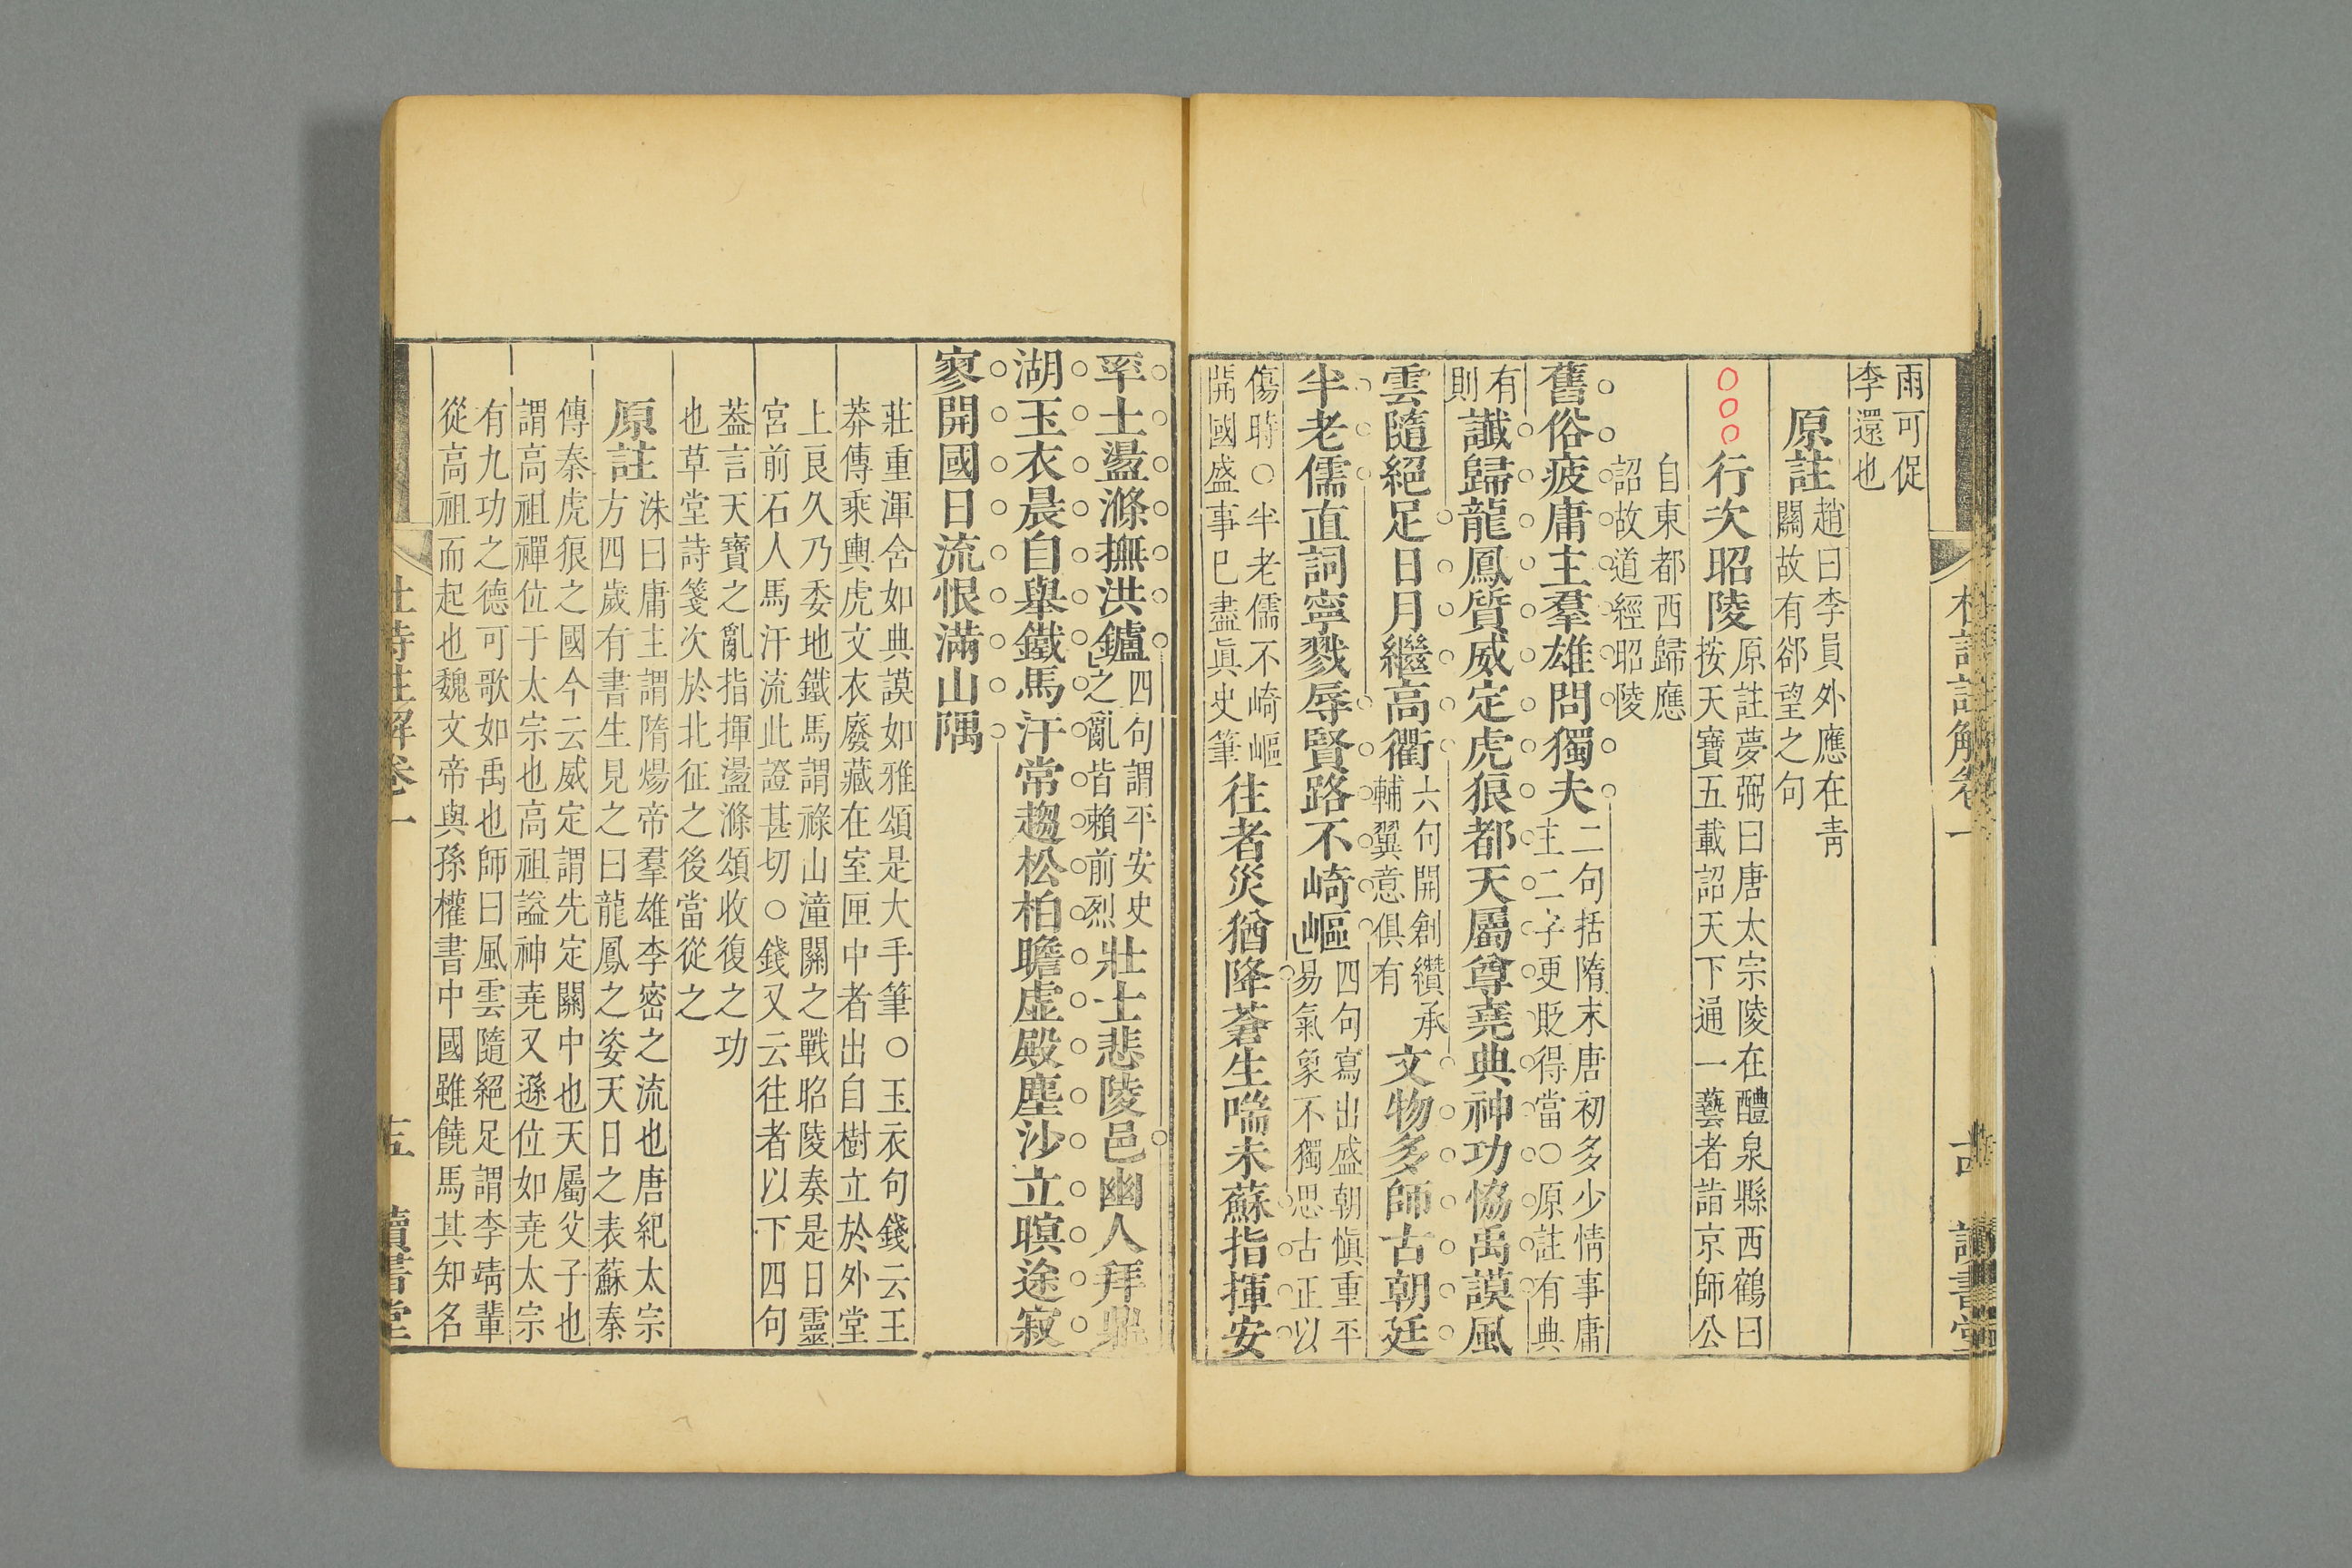 杜詩註解卷一
讀書堂
雨可促
李還也
原註
趙曰李員外應在青
關故有郤望之句
○○○行次昭陵
原註夢弼曰唐太宗陵在醴泉縣西鶴曰
按天寶五載詔天下通一藝者詣京師公
自東都西歸應
詔故道經昭陵
舊俗疲庸主羣雄問獨夫
二句括隋末唐初多少情事庸
主二字更貶得當○原註有典
有
則
讖歸龍鳳質威定虎狼都天屬尊堯典神功協禹謨風
雲隨絕足日月繼高衢
六句開創纘承
輔翼意俱有
文物多師古朝廷
半老儒直詞寧戮辱賢路不崎嶇
四句寫出盛朝愼重平
易氣象不獨思古正以
傷時○半老儒不崎嶇
開國盛事巳盡眞史筆
往者災猶降蒼生喘未蘇指揮安
率土盪滌撫洪鑪
四句謂平安史
之亂皆賴前烈
壯士悲陵邑幽人拜鼎
湖玉衣晨自舉鐵馬汗常趨松柏瞻虛殿塵沙立暝途寂
寥開國日流恨滿山隅
莊重渾含如典謨如雅頌是大手筆○玉衣句錢云王
莽傳乘輿虎文衣廢藏在室匣中者出自樹立於外堂
上良久乃委地鐵馬謂祿山潼關之戰昭陵奏是日靈
宮前石人馬汗流此證甚切○錢又云往者以下四句
葢言天寶之亂指揮盪滌頌收復之功
也草堂詩箋次於北征之後當從之
原註
洙曰庸主謂隋煬帝羣雄李密之流也唐紀太宗
方四歲有書生見之曰龍鳳之姿天日之表蘇秦
傳秦虎狼之國今云威定謂先定關中也天屬父子也
謂高祖禪位于太宗也高祖謚神堯又遜位如堯太宗
有九功之德可歌如禹也師曰風雲隨絕足謂李靖輩
從高祖而起也魏文帝與孫權書中國雖饒馬其知名
杜詩註解卷一
十五
讀書堂